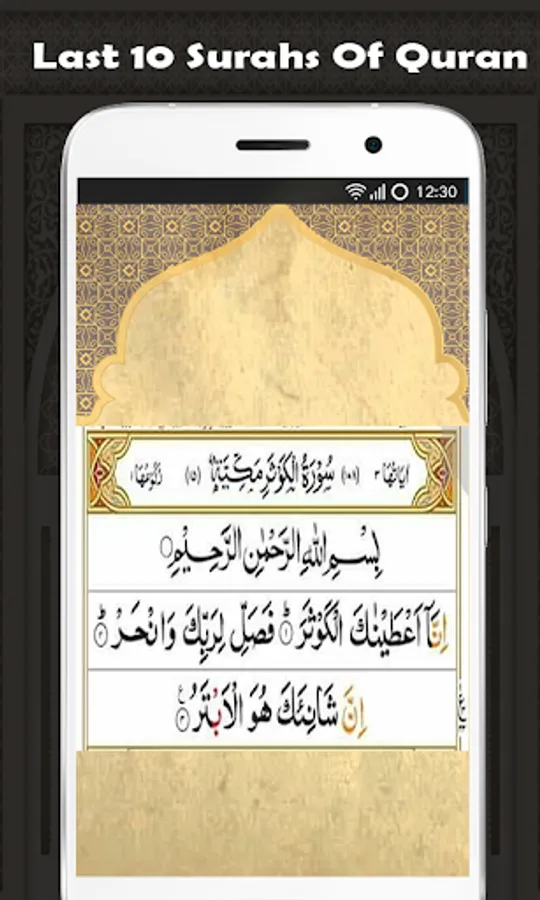 Last 10 Surahs Of Quran
12:30
اٰيَاتُهَا ٣ (١٠٨) سُوْرَةُ الْكَوْثَرِ مَكِّيَّةٌ (١٥) رُكُوْعُهَا ١
بِسْمِ اللّٰهِ الرَّحْمٰنِ الرَّحِيْمِ
اِنَّاۤ اَعْطَيْنٰكَ الْكَوْثَرَ ؕ﴿١﴾ فَصَلِّ لِرَبِّكَ وَانْحَرْ ؕ﴿٢﴾
اِنَّ شَانِئَكَ هُوَ الْاَبْتَرُ ﴿٣﴾